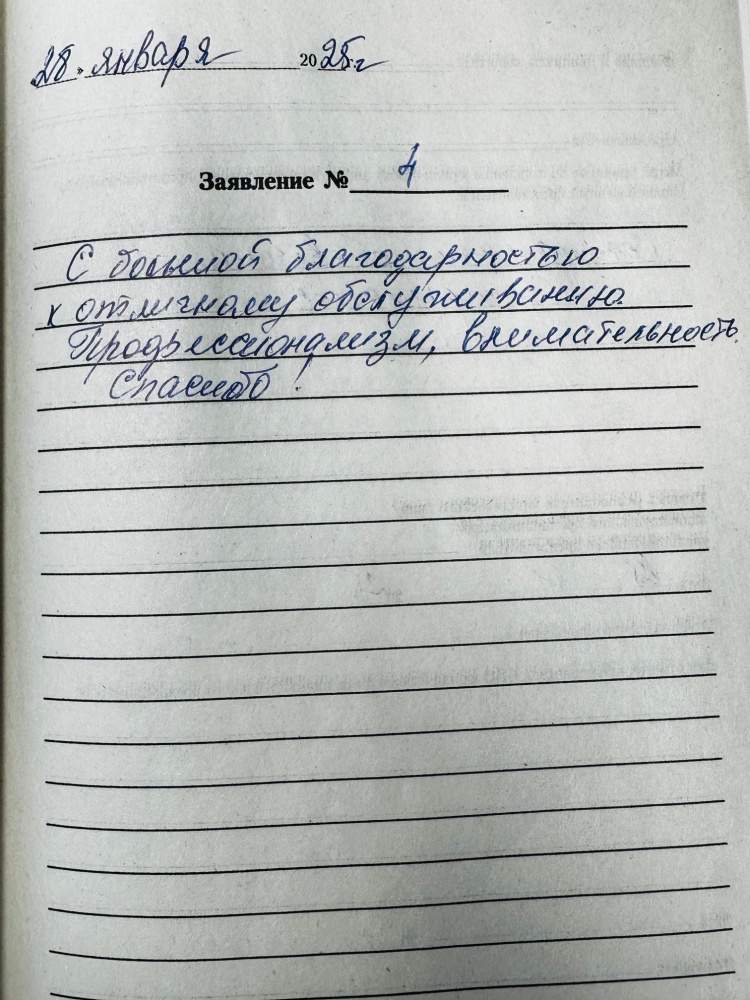 28 " января 2025 г
Заявление № 4
С большой благодарностью
к отличному обслуживанию.
Профессионализм, внимательность.
Спасибо!